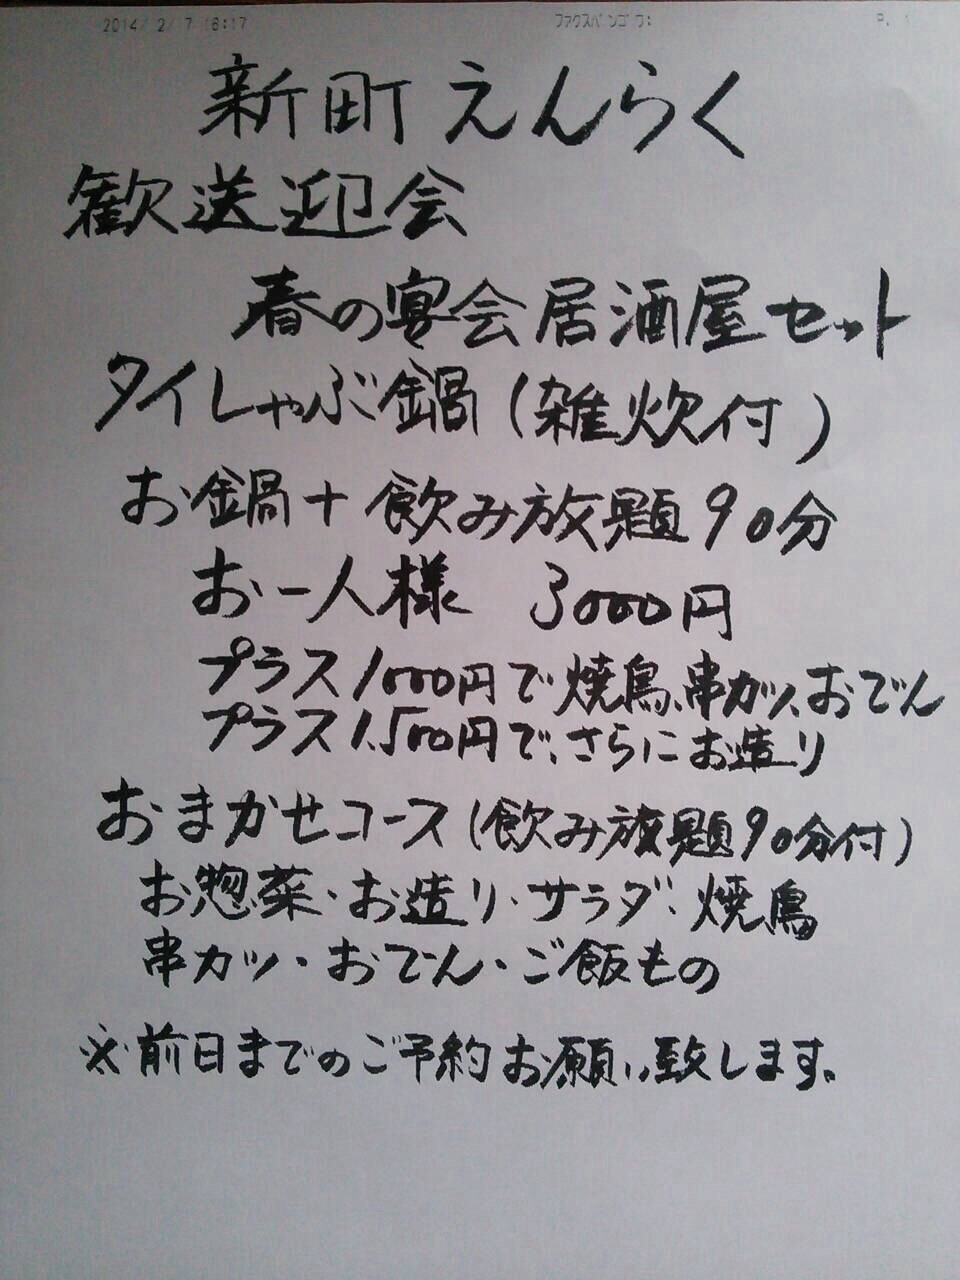 2014/ 2/ 7 16:17 ファクスバンゴウ: P.
新町えんらく
歓送迎会
春の宴会居酒屋セット
タイしゃぶ鍋(雑炊付)
お鍋+飲み放題90分
お一人様 3000円
プラス1000円で焼鳥、串カツ、おでん
プラス1,500円で、さらにお造り
おまかせコース(飲み放題90分付)
お惣菜・お造り・サラダ・焼鳥
串カツ・おでん・ご飯もの
※前日までのご予約お願い致します。